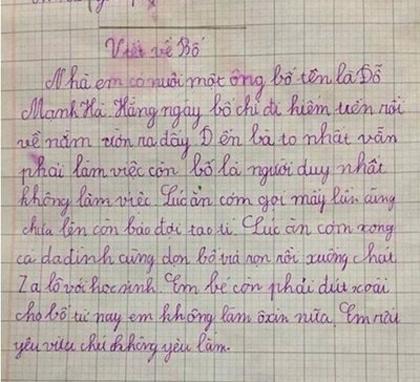 Viết về Bố
Nhà em có nuôi một ông bố tên là Đỗ
Mạnh Hà. Hằng ngày bố chỉ đi kiếm tiền rồi
về nằm ườn ra đấy Đến bà to nhất vẫn
phải làm việc còn bố là người duy nhất
không làm việc Lúc ăn cơm gọi mấy lần cũng
chưa lên còn bảo đợi tao tí. Lúc ăn cơm xong
cả da đình cùng dọn bố vừa rọn rồi xuống chat
Za lô với học sinh. Em bé còn phải đút xoài
cho bố từ nay em không làm ôxin nữa. Em rất
yêu chứ không yêu lắm.